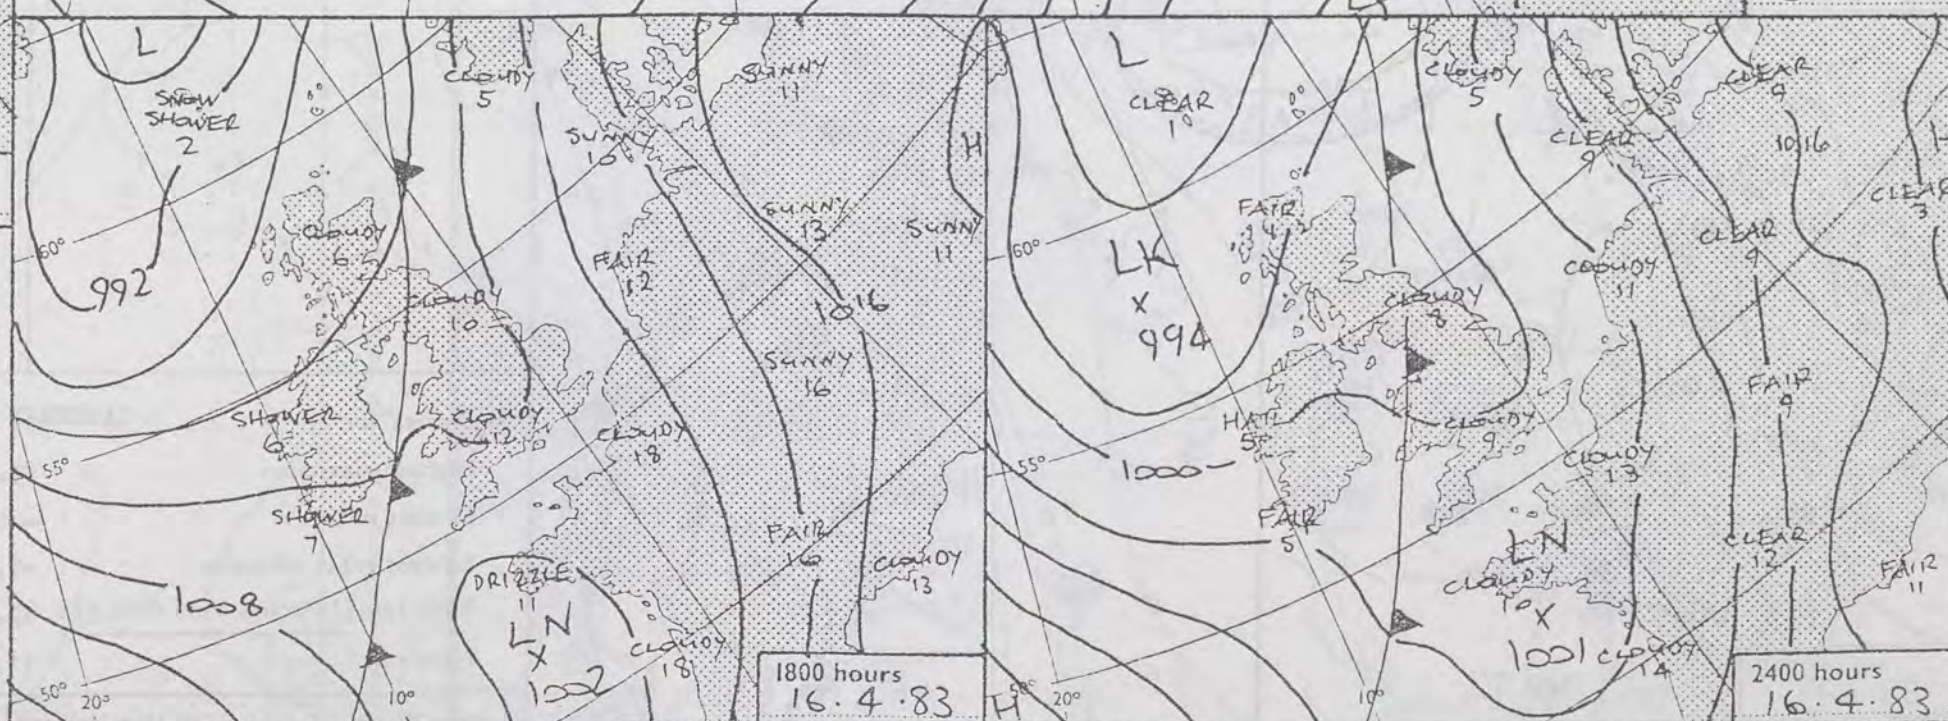 L
CLOUDY
5
SUNNY
11
SNOW
SHOWER
2
SUNNY
10
H
CLOUDY
6
SUNNY
13
SUNNY
11
60°
992
FAIR
12
CLOUDY
10
1016
SUNNY
16
SHOWER
CLOUDY
12
CLOUDY
18
55°
SHOWER
7
FAIR
16
CLOUDY
13
DRIZZLE
11
1008
LN
X
1002
CLOUDY
18
50°
20°
10°
1800 hours
16.4.83
L
CLEAR
10
CLOUDY
5
CLEAR
9
CLEAR
9
1016
H
CLEAR
3
FAIR
4
CLEAR
9
60°
LK
X
994
CLOUDY
11
CLOUDY
8
FAIR
9
HAIL
5
CLOUDY
9
55°
1000
CLOUDY
13
FAIR
5
CLEAR
12
LN
CLOUDY
10
X
1001
FAIR
11
CLOUDY
14
H
50°
20°
10°
2400 hours
16.4.83